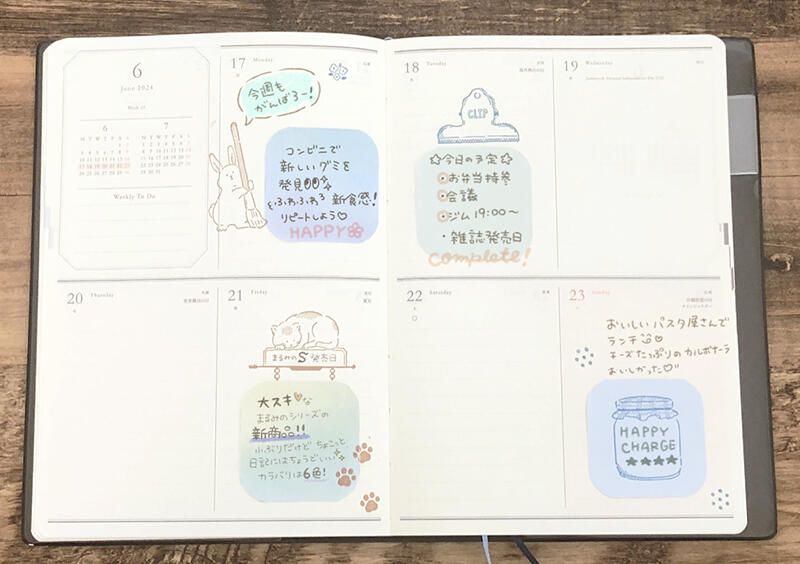 6
June 2024
Week 25
6
7
Weekly To Do
17
Monday
今週も
がんばろー!
コンビニで
新しいグミを
発見
ふわふわ 新食感!
リピートしよう♡
HAPPY
18
Tuesday
CLIP
☆今日の予定☆
お弁当持参
会議
ジム 19:00〜
・雑誌発売日
complete!
19
Wednesday
20
Thursday
21
Friday
まるみのS発売日
大スキ♥な
まるみのシリーズの
新商品!!
小ぶりだけど ちょこっと
日記にはちょうどいい
カラバリは6色!
22
Saturday
23
Sunday
おいしいパスタ屋さんで
ランチ
チーズたっぷりのカルボナーラ
おいしかった♡
HAPPY
CHARGE
★★★★